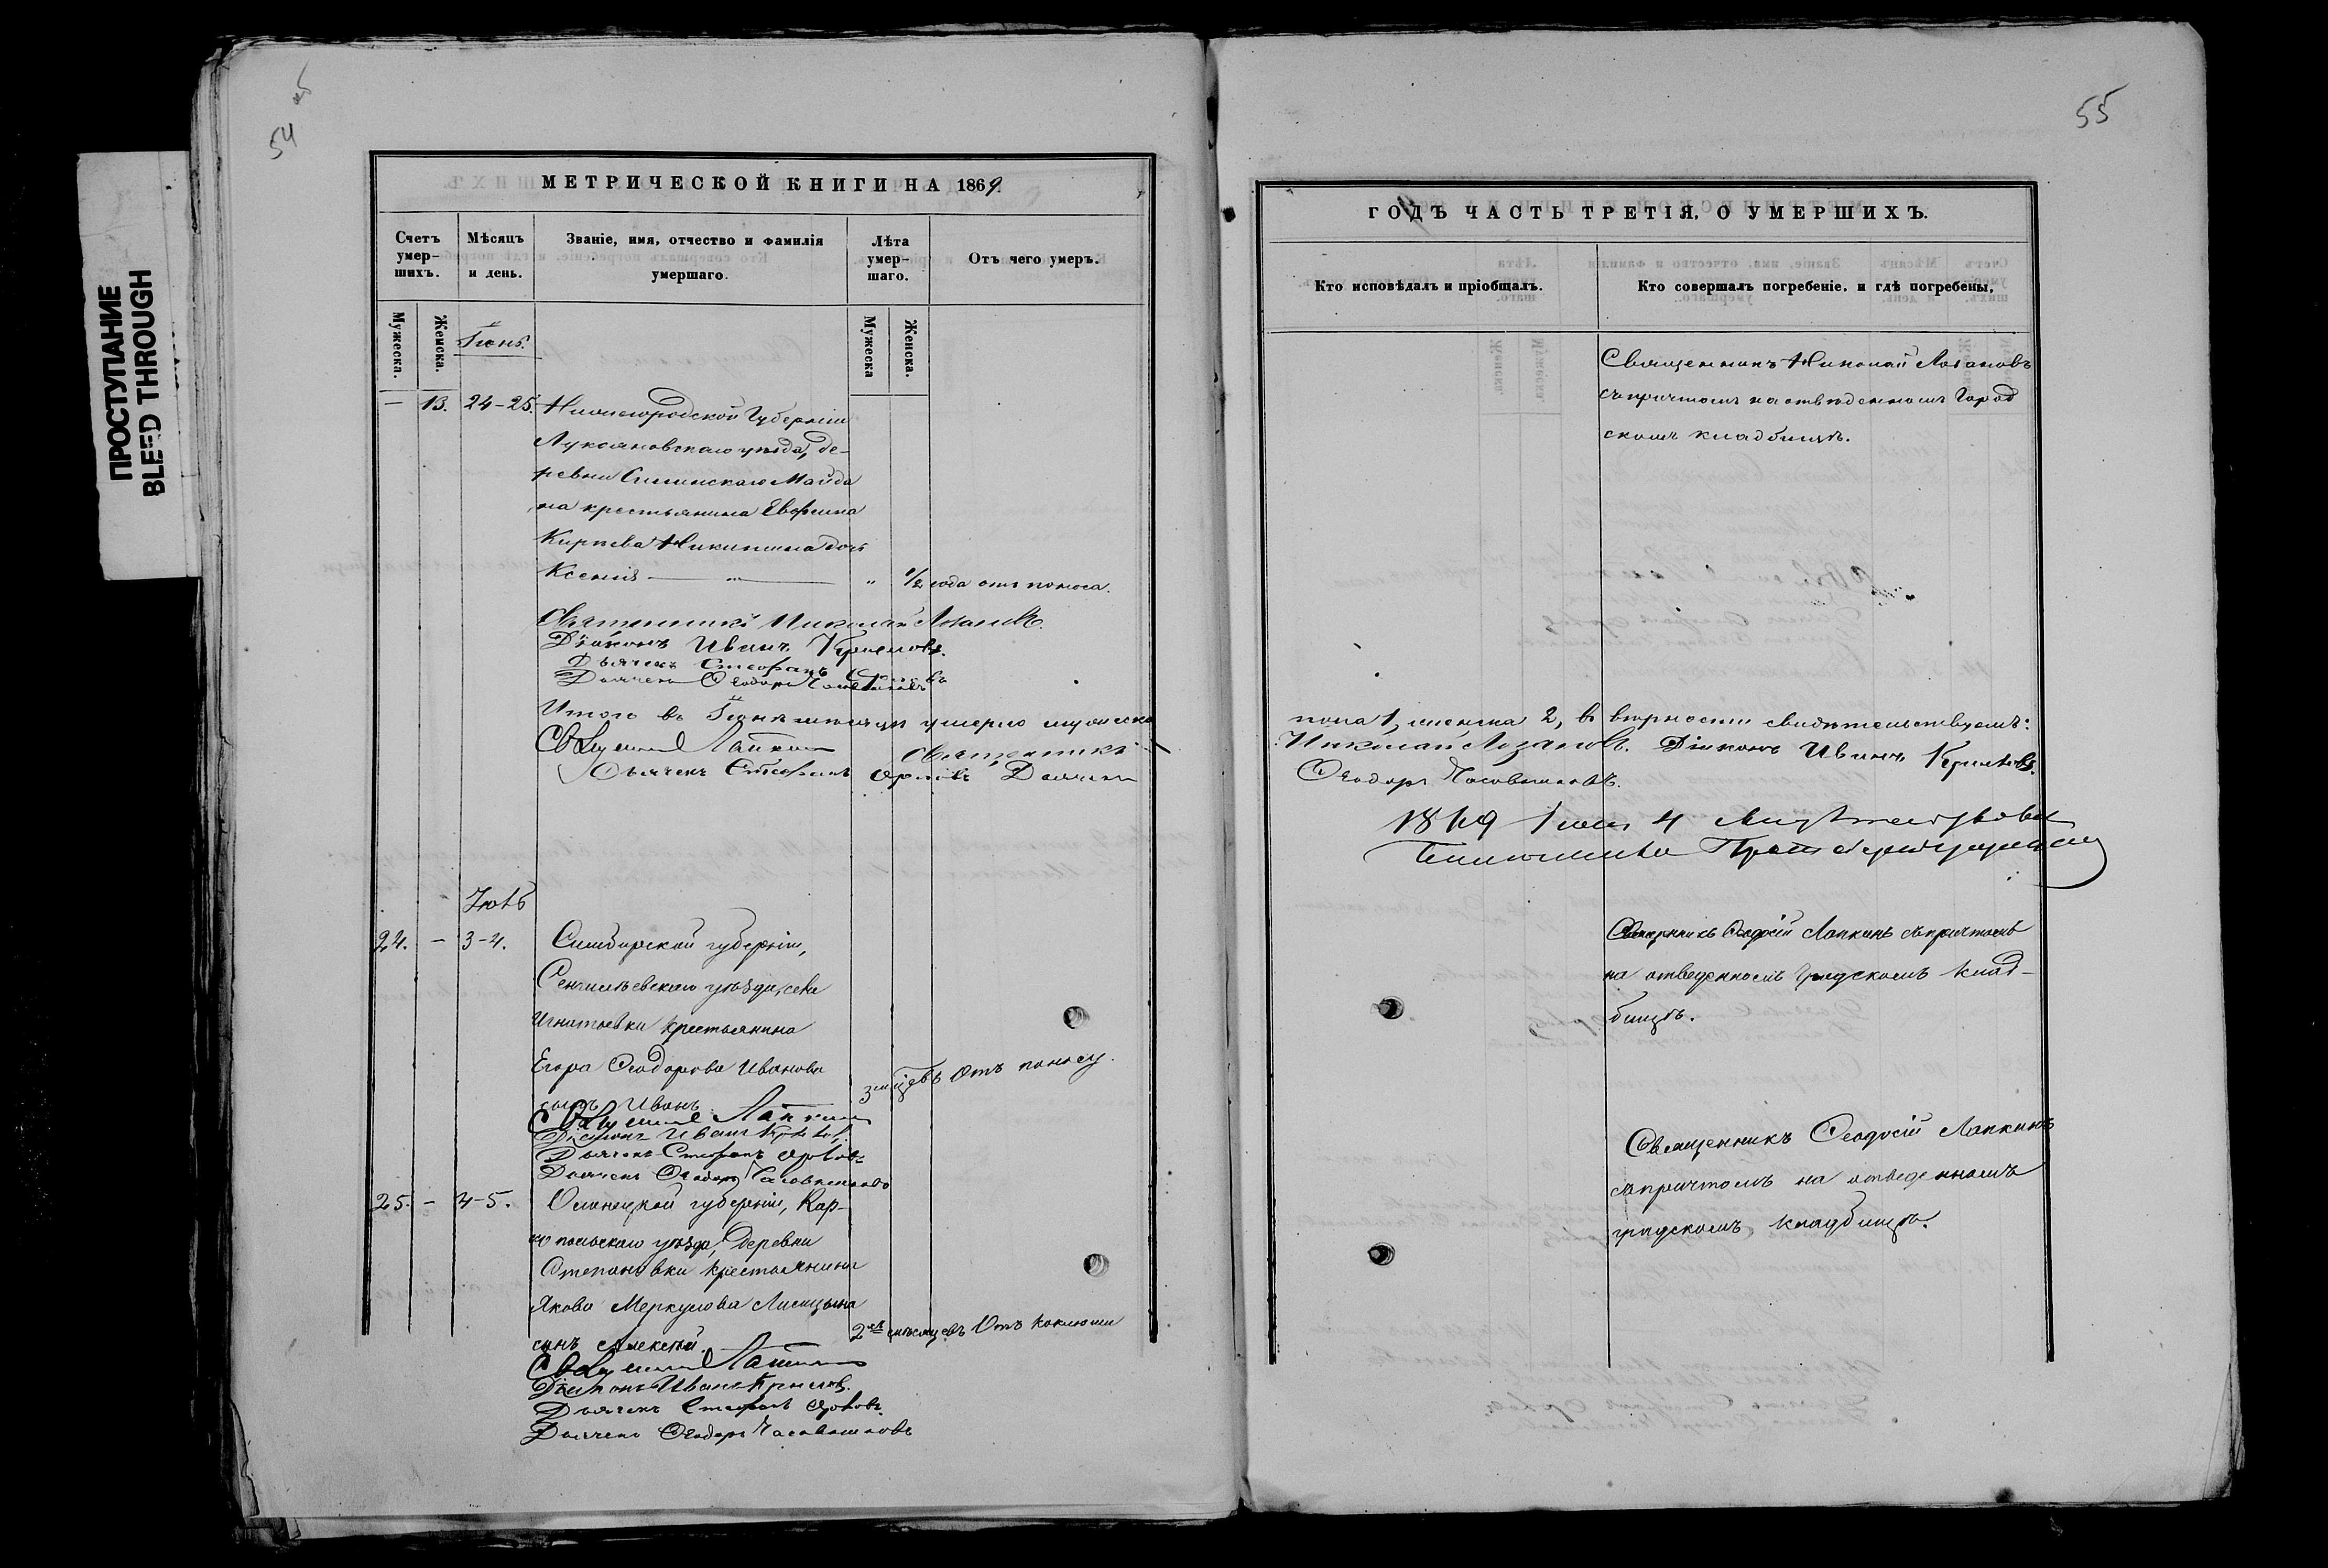 54
55
ПРОСТУПАНИЕ
BLEED THROUGH
МЕТРИЧЕСКОЙ КНИГИ НА 1869.
Счетъ умер-шихъ.
Мѣсяцъ и день.
Званіе, имя, отчество и фамилія умершаго.
Лѣта умер-шаго.
Отъ чего умеръ.
Мужеска.
Женска.
Мужеска
Женска.
Іюнь.
— 13. 24-25. Нижегородской Губерніи
Лукояновскаго уѣзда, де-
ревни Силинскаго Майда
на крестьянина
Никитина дочь
Ксенія — " — " 1/2 года отъ поноса.
Священникъ Николай Лозановъ.
Діаконъ Иванъ Крыловъ.
Дьячекъ Стефанъ
Дьячекъ Ѳеодоръ
Итого въ Іюнѣ мѣсяцѣ умерло мужеска
Лапкинъ Священникъ
Дьячекъ Стефанъ Орловъ Дьячекъ
Іюль
24. — 3-4. Симбирской губерніи,
Сенгилѣевскаго уѣзда, села
Игнатьевки крестьянина
Егора Ѳеодорова Иванова
сынъ Иванъ 3 Отъ поносу.
Лапкинъ
Діаконъ Иванъ
Дьячекъ Стефанъ Орловъ
Дьячекъ Ѳеодоръ
25. — 4-5. Олонецкой губерніи, Кар-
гопольскаго уѣзда, деревни
Степановки крестьянина
Якова Меркулова Лисицына
сынъ Алексѣй. 2хъ мѣсяцевъ Отъ коклюши
Лапкинъ
Діаконъ Иванъ Крыловъ.
Дьячекъ Стефанъ Орловъ.
Дьячекъ Ѳеодоръ
ГОДЪ ЧАСТЬ ТРЕТІЯ, О УМЕРШИХЪ.
Кто исповѣдалъ и пріобщалъ.
Кто совершалъ погребеніе, и гдѣ погребены,
Священникъ Николай Лозановъ
съ причтомъ на отведенномъ Город
скомъ кладбищѣ.
пола 1, женска 2, въ вѣрности свидѣтельствуемъ:
Николай Лозановъ. Діаконъ Иванъ Крыловъ.
Ѳеодоръ
1869 4
Священникъ Ѳеодосій Лапкинъ съ причтомъ
на отведенномъ градскомъ клад-
бищѣ.
Священникъ Ѳеодосій Лапкинъ
съ причтомъ на отведенномъ
градскомъ кладбищѣ.